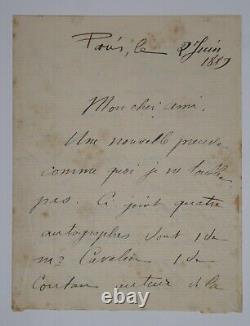 Paris, le 2 Juin
1889
Mon cher ami.
Une nouvelle preuve
comme quoi je ne
pas. Ci joint quatre
autographes dont 1 de
Mr Cavelier 1 de
auteur de la
thecelebritycity.com